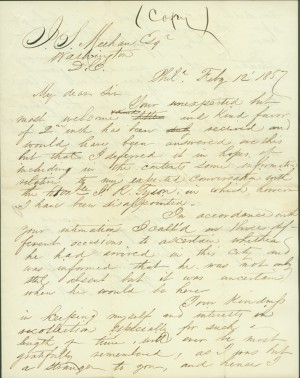 (Copy)
J. S. Meehan Esqr
Washington
D.C.
Phila Feby 12 1857
My dear Sir
Your unexpected but
most welcome and kind favor
of 2nd inst has been received and
would have been answered
but that I deferred it in hopes of
including in the contents some information
relative to my expected conversation with
the J. R. Tyson, in which however
I have been disappointed.
In accordance with
your intimation I call'd on three dif-
ferent occasions to ascertain whether
he had arrived in this city and
was informed that he was not only
still absent but it was uncertain
when he would be here
Your kindness
in keeping myself and interests in
recollection especially for such a
length of time, will ever be most
gratefully remembered, as I was but
a stranger to you, and hence I